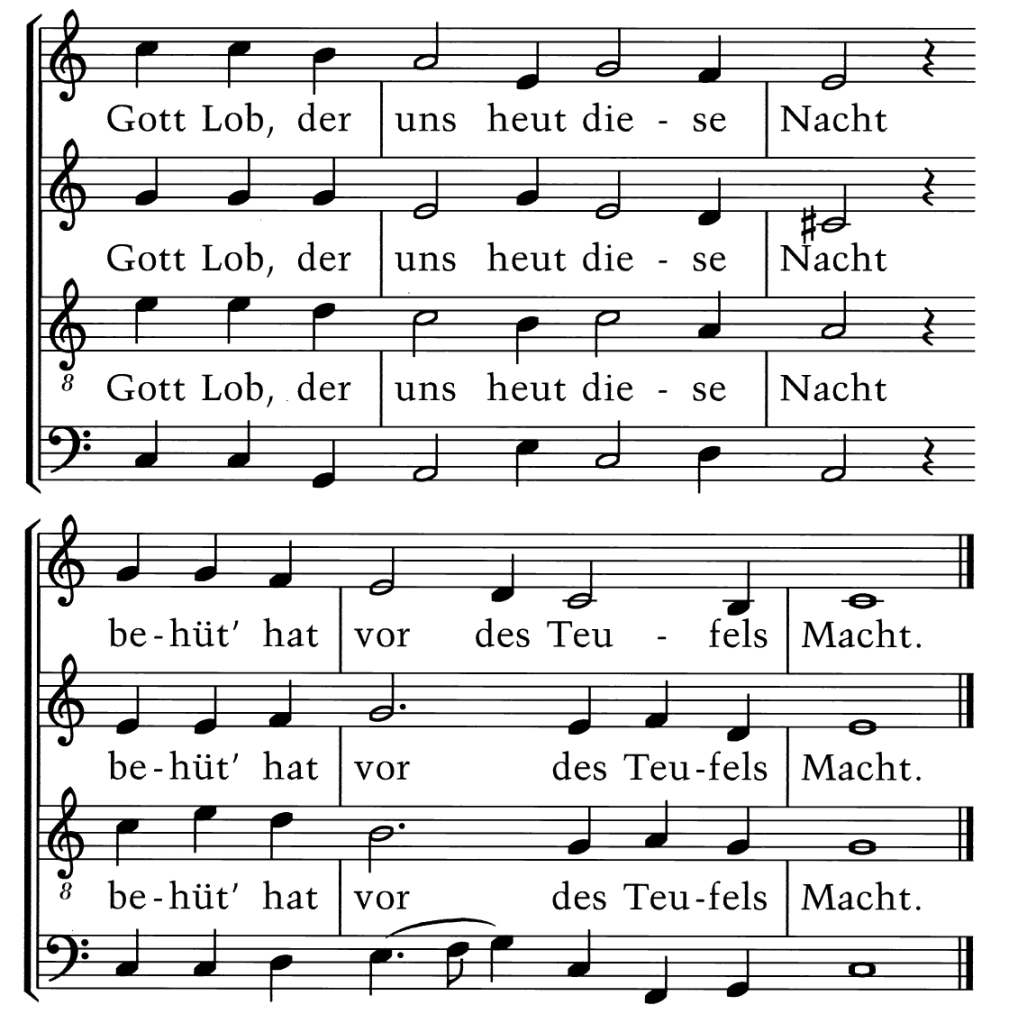 Gott Lob, der uns heut die - se Nacht
Gott Lob, der uns heut die - se Nacht
8 Gott Lob, der uns heut die - se Nacht
be-hüt’ hat vor des Teu - fels Macht.
be-hüt’ hat vor des Teu-fels Macht.
8 be-hüt’ hat vor des Teu-fels Macht.